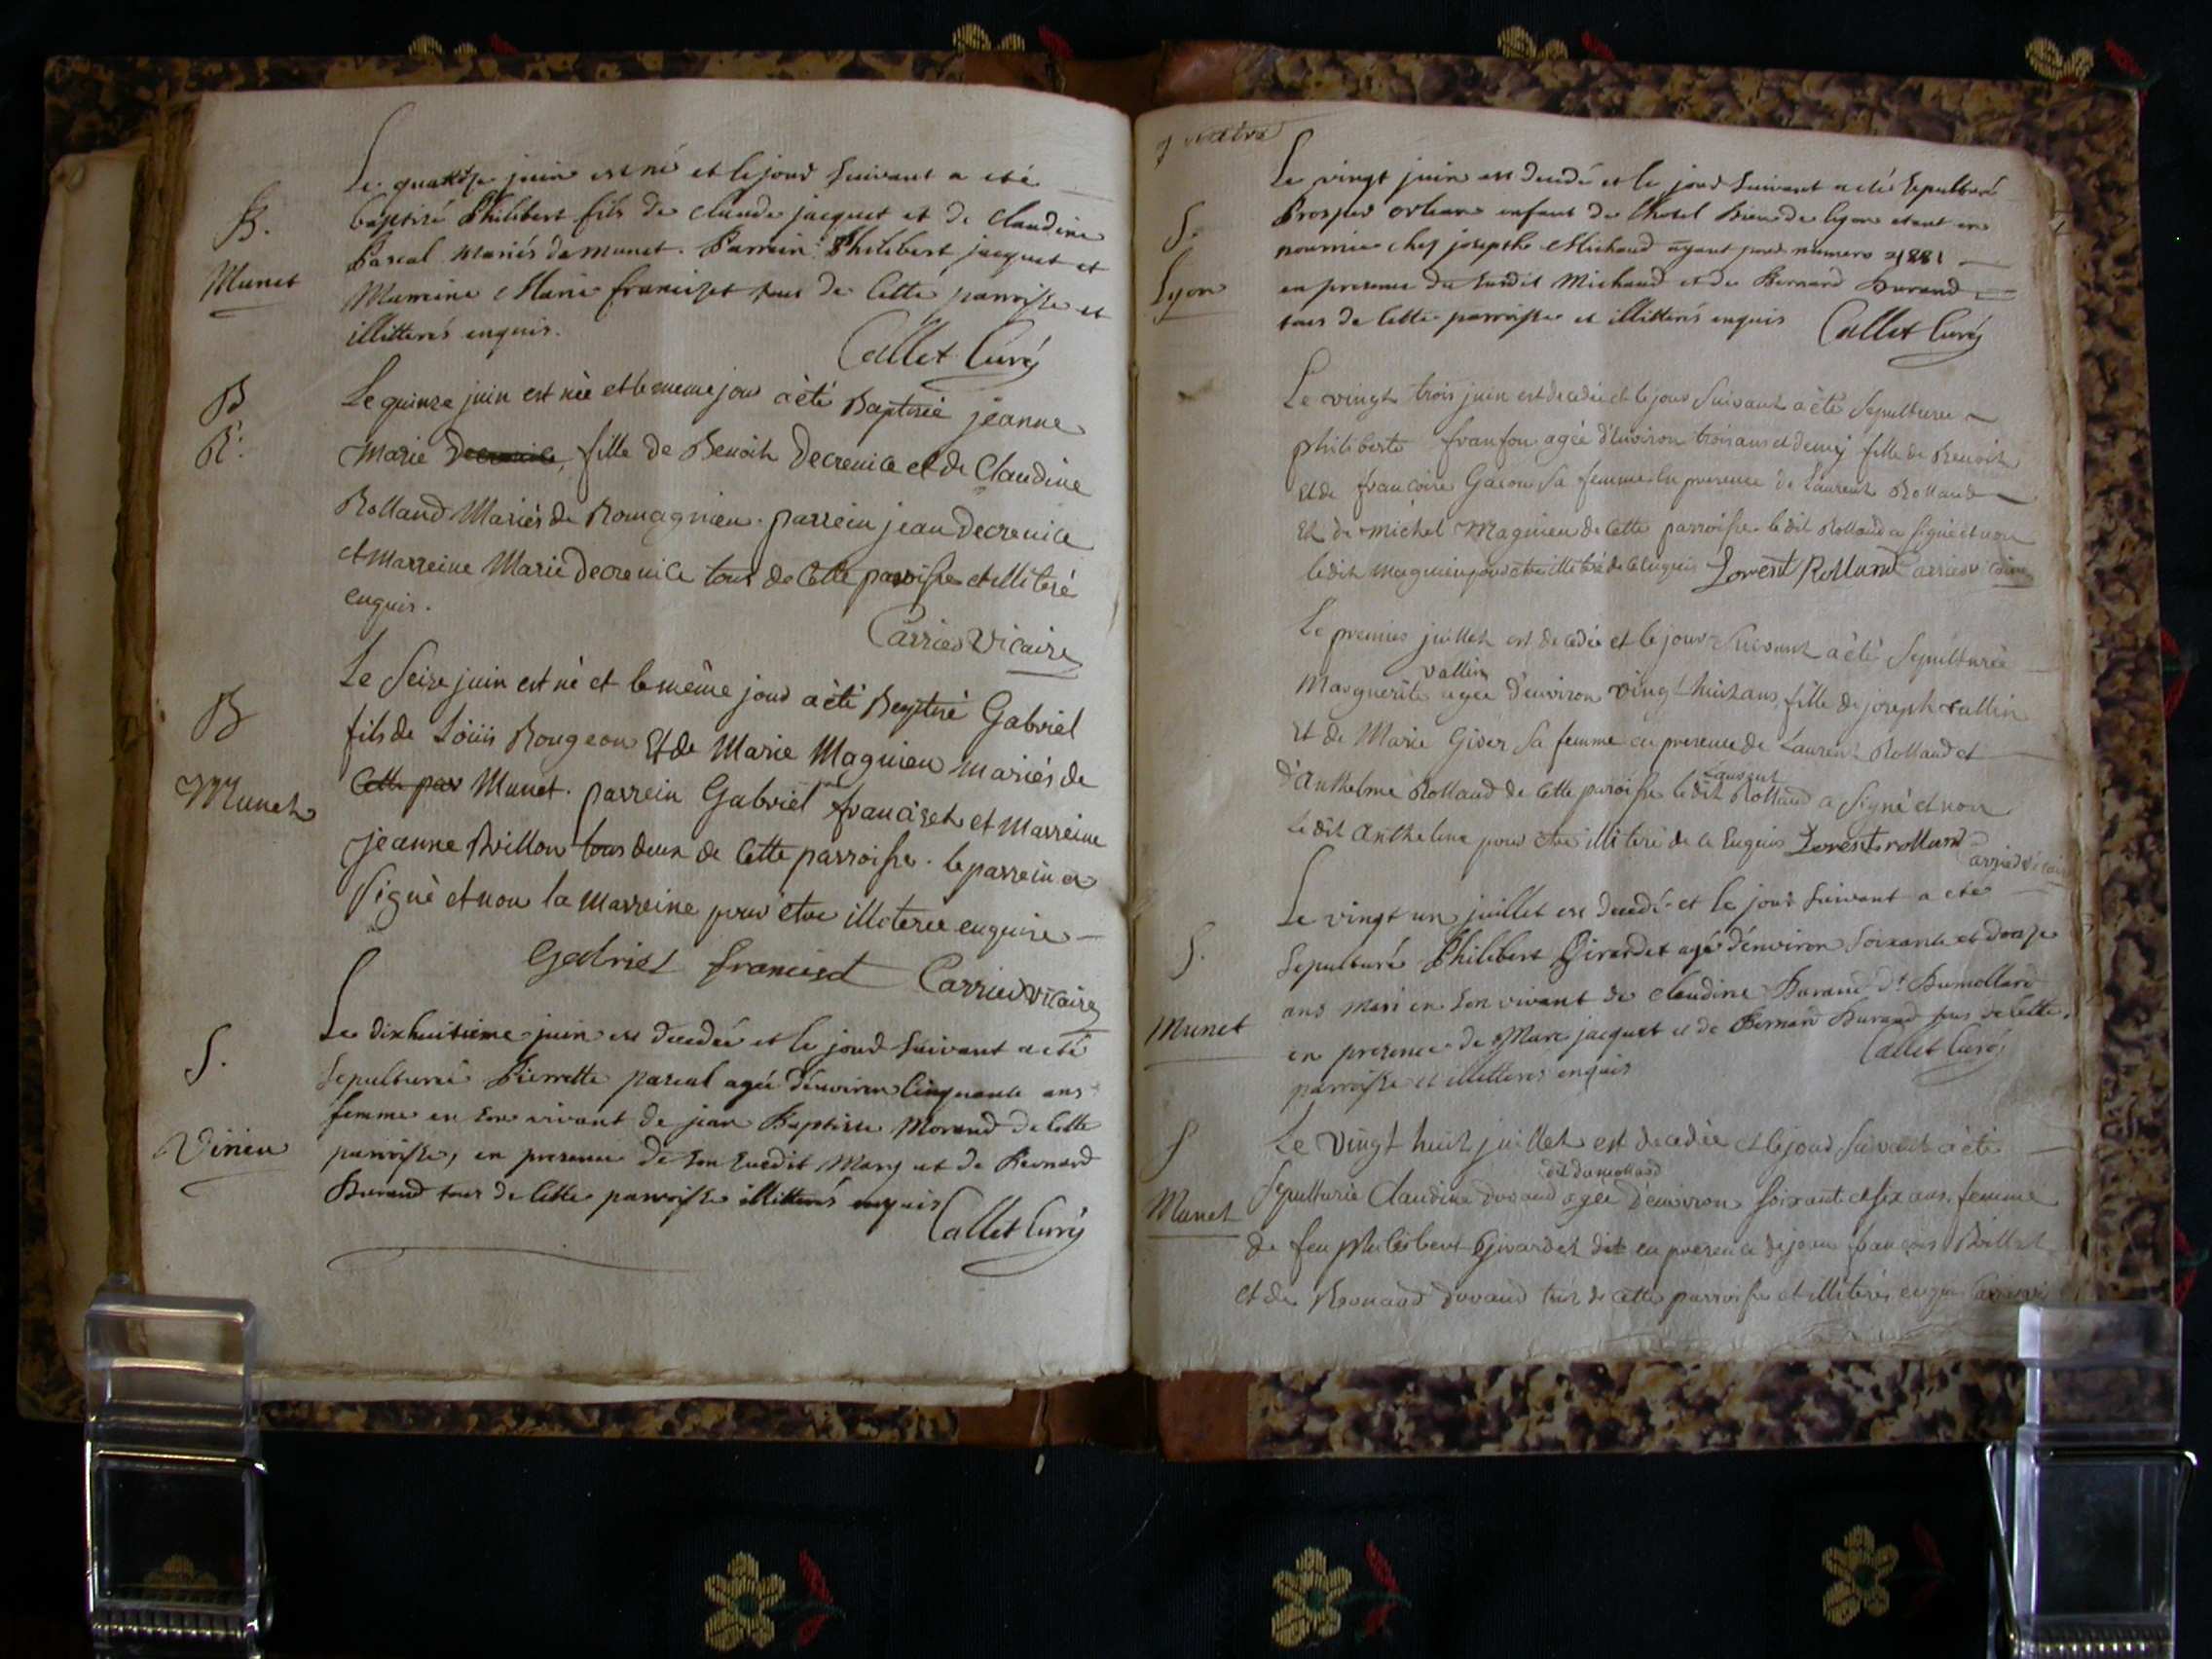 Le quatorze juin est né et le jour suivant a été
B.
baptisé Philibert fils de claude jacquet et de Claudine
Pascal mariés de munet. Parrain Philibert jacquet et
Munet
Marraine Marie francizet tous de Cette parroisse et
illitterés enquis.
Callet Curé
B
Le quinze juin est née et le meme jour a èté Baptisée jeanne
R.
Marie Decrenice, fille de Benoit Decrenice et de Claudine
Rolland Mariés de Romagnieu. parrein jean Decrenice
et Marreine Marie Decrenice tous de Cette paroisse et illiteré
enquis.
Carrier Vicaire
Le Seize juin est né et le même jour a èté Baptisé Gabriel
B
fils de Loüis Rougeon Et de Marie Magnien mariés de
Munet
Cette par Munet. parrein Gabriel francizet et Marreine
jeanne Brillon tous deux de Cette parroisse. le parrein a
Signè et non la Marreine pour etre illiteree enquise
Gabriel franciset Carrier vicaire
S.
Le dixhuitieme juin est decedée et le jour suivant a eté
sepulturée Pierrette pascal agée d'environ Cinquante ans
femme en son vivant de jean Baptiste Morand de Cette
Virieu
parroisse, en presence de son susdit Mary et de Bernard
Durand tous de Cette parroisse illitterés enquis
Callet Curé
quatre
Le vingt juin est decedé et le jour suivant a eté sepulturé
S.
Prosper orleans enfant de l'hotel Dieu de lyon etant en
nourrice chez josepsh Michaud ayant pour numero 21881
Lyon
en presence du susdit Michaud et de Bernard Durand
tous de Cette parroisse et illitterés enquis Callet Curé
Le vingt trois juin est decedée et le jour Suivant a èté Sepulturee
philiberte franson agée d'environ trois ans et demij fille de Benoit
et de francoise Gacon Sa femme En presence de Laurent Rolland
Et de Michel Magnien de Cette parroisse le dit Rolland a signé et non
le dit Magnien pour etre illiteré de Ce enquis Lorent Rolland Carrier vicaire
Le premier juillet est decedée et le jour Suivant a èté Sepulturèe
Vallin
Marguerite agee d'environ vingt huit ans, fille de joseph vallin
Et de Marie Giver Sa femme en presence de Laurent Rolland et
Laurent
d'Anthelme Rolland de Cette paroisse le dit Rolland a Signé et non
Le dit Anthelme pour etre illiteré de Ce Enquis Lorent rolland
Carrier vicaire
Le vingt un juillet est decedé et le jour suivant a eté
S.
sepulturé Philibert Girardet agé d'environ soixante et douze
ans mari en son vivant de claudine Durand dt Dumollard
Munet
en presence de Marc jacquet et de Bernard Durand tous de Cette
parroisse et illitteres enquis
Callet Curé
S
Le vingt huit juillet est decedée et le jour Suivant a èté
dit dumollard
Sepulturée Claudine durand agée d'environ Soixante et Six ans, femme
Munet
de feu philibert Girardet dit en presence de jean francois Billiet
et de Bernard durand tous de Cette parroisse et illiterés enquis